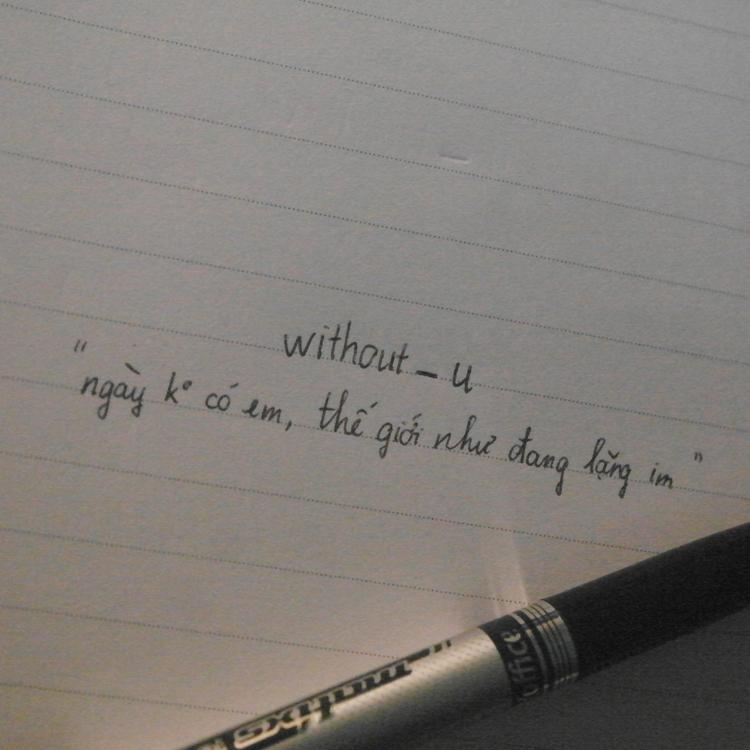 without_u
"ngày kº có em, thế giới như đang lặng im"
office